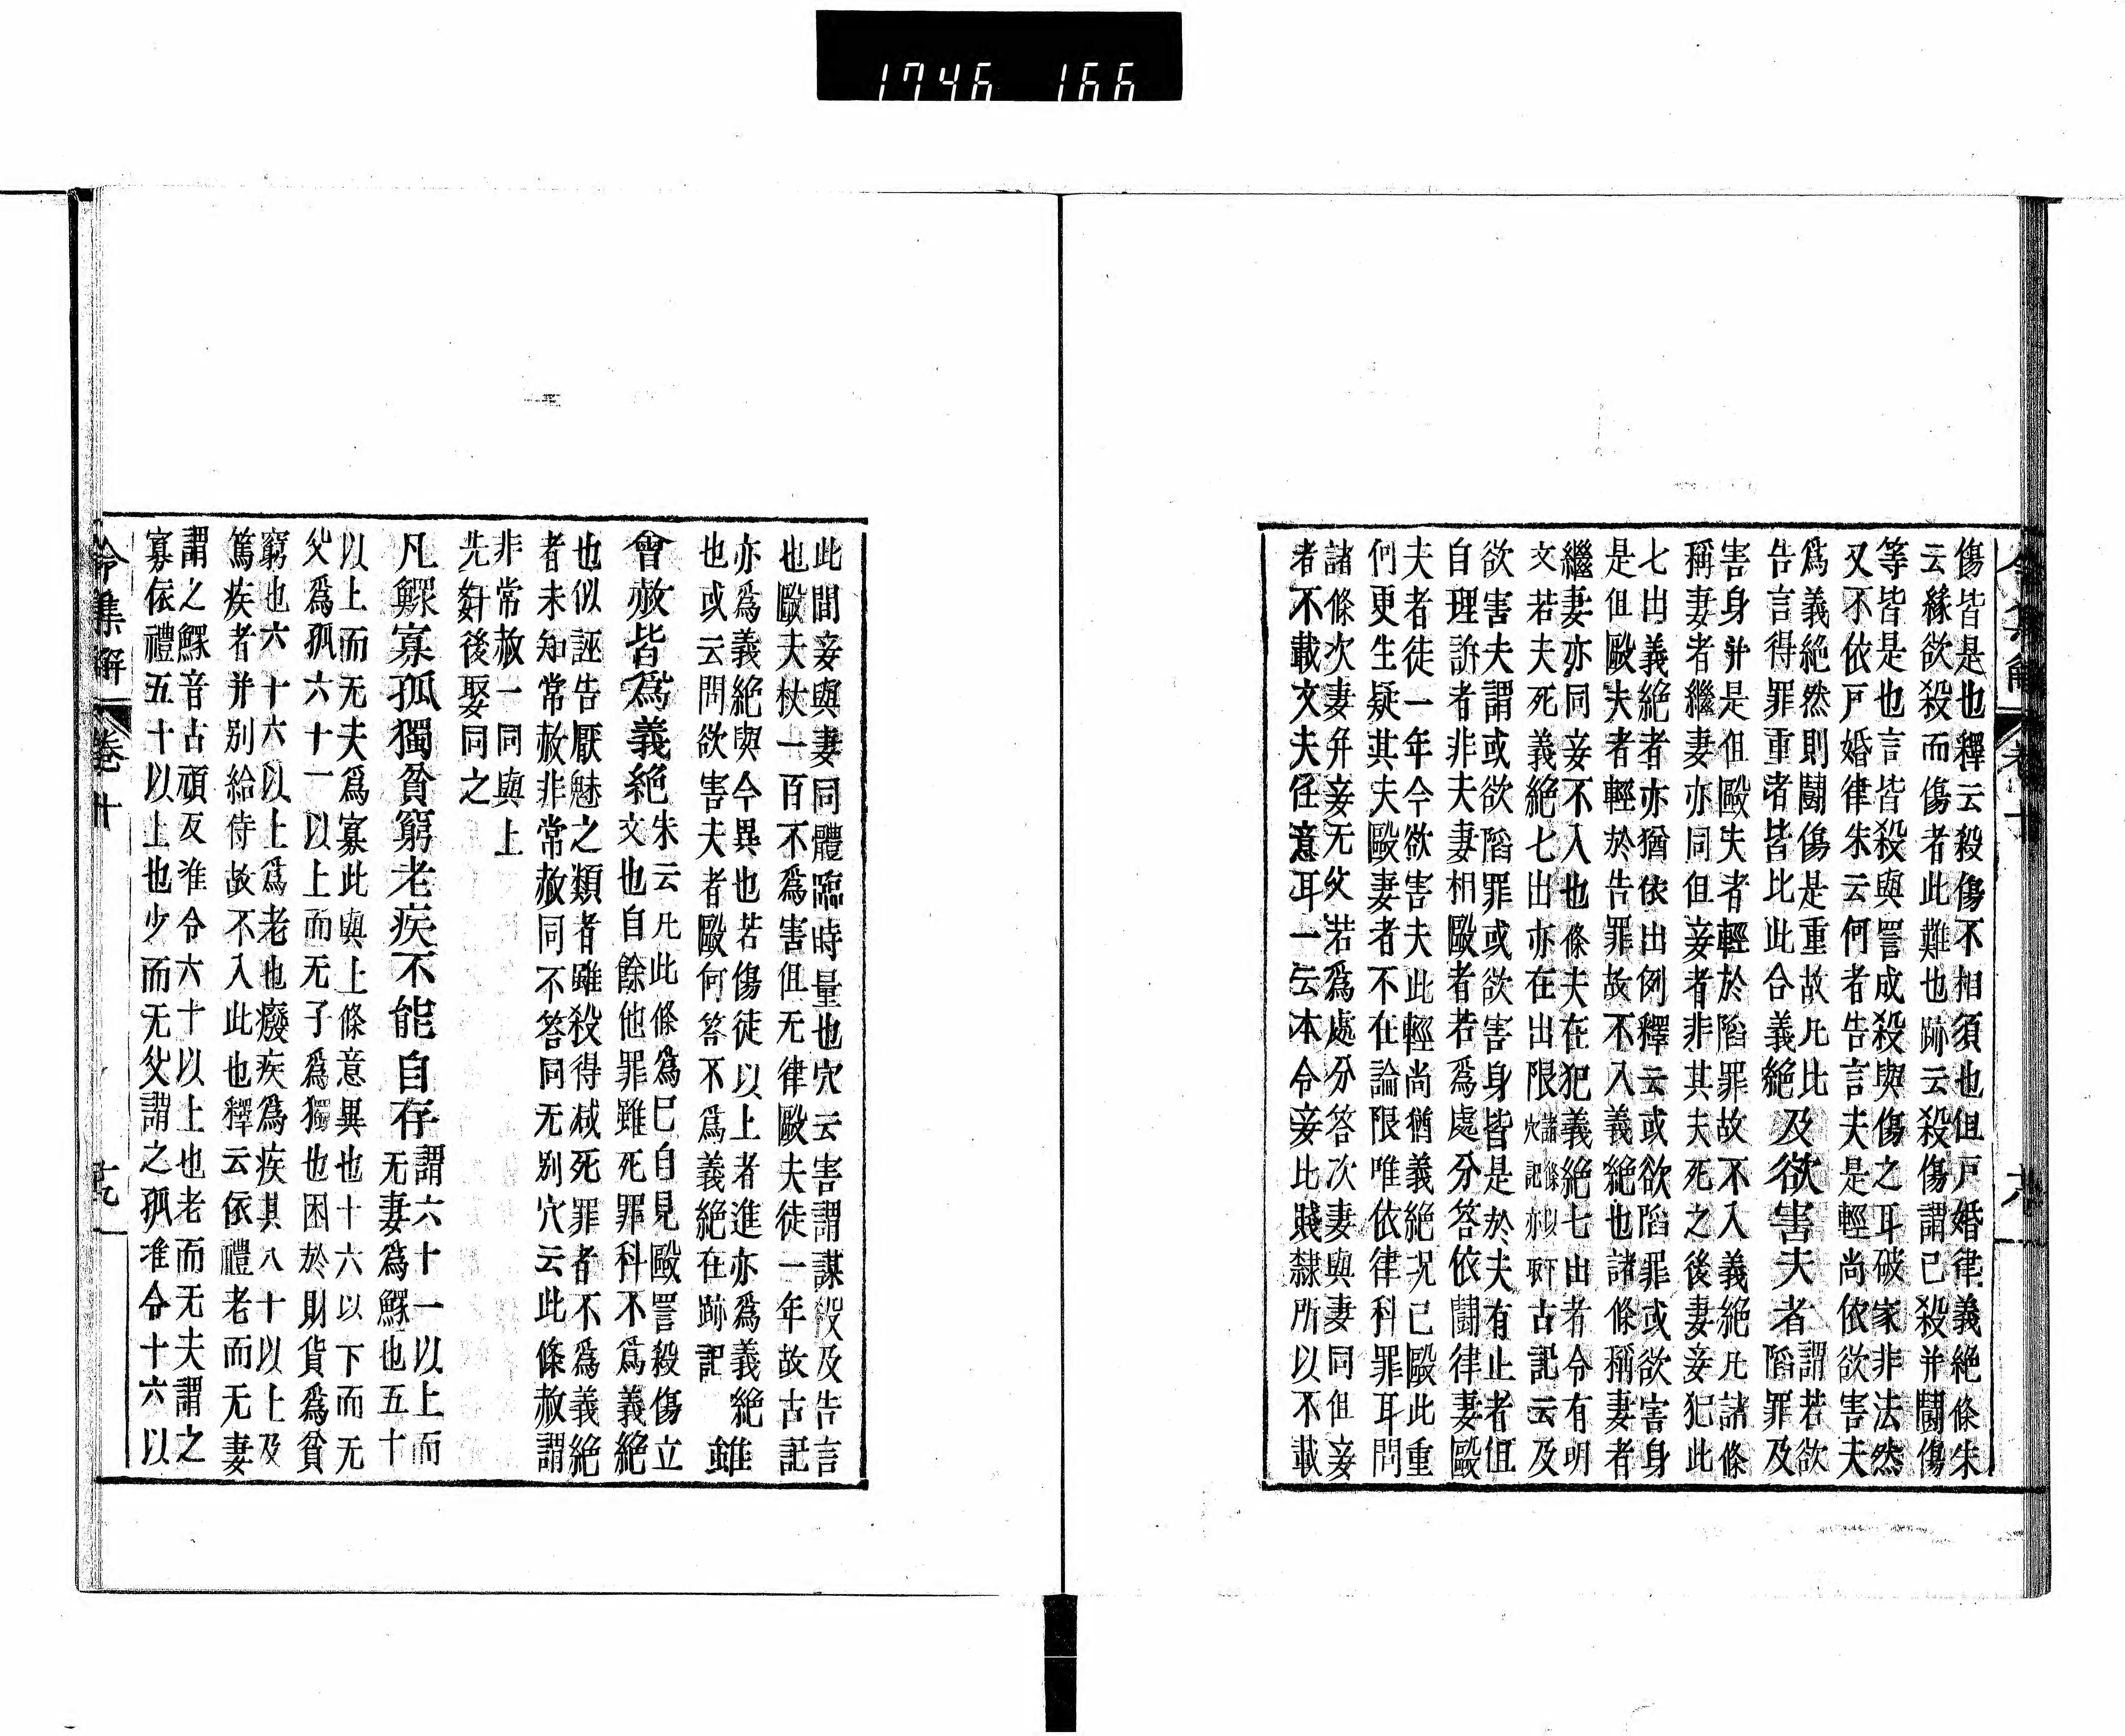 1746 166
傷皆是也釋云殺傷不相須也但戸婚律義絶條朱
云緣欲殺而傷者此難也跡云殺傷謂已殺并鬪傷
等皆是也言皆殺與詈成殺與傷之耳破家非法然
又不依戸婚律朱云何者告言夫是輕尚依欲害夫
爲義絶然則鬪傷是重故凡比
告言得罪重者皆比此合義絶
及欲害夫者
謂若欲
陷罪及
害身并是但毆夫者輕於陷罪故不入義絶凡諸條
稱妻者繼妻亦同但妾者非其夫死之後妻妾犯此
七出義絶者亦猶依出例釋云或欲陷罪或欲害身
是但毆夫者輕於告罪故不入義絶也諸條稱妻者
繼妻亦同妾不入也條夫在犯義絶七出者令有明
文若夫死義絶七出亦在出限
諸條以下
穴記亦取
古記云及
欲害夫謂或欲陷罪或欲害身皆是於夫有止者但
自理訴者非夫妻相毆者若爲處分答依鬪律妻毆
夫者徒一年今欲害夫此輕尚猶義絶况已毆此重
何更生疑其夫毆妻者不在論限唯依律科罪耳問
諸條次妻并妾无文若爲處分答次妻與妻同但妾
者不載文夫任意耳一云本令妾比賤隸所以不載
此間妾與妻同體臨時量也穴云害謂謀殺及告言
也毆夫杖一百不爲害但无律毆夫徒一年故古記
亦爲義絶與今異也若傷徒以上者進亦爲義絶
也或云問欲害夫者毆何答不爲義絶在跡記
雖
會赦皆爲義絶
朱云凡此條爲已自見毆詈殺傷立
文也自餘他罪雖死罪科不爲義絶
也似誣告厭魅之類者雖殺得減死罪者不爲義絶
者未知常赦非常赦同不答同无別穴云此條赦謂
非常赦一同與上
先姧後娶同之
凡鰥寡孤獨貧窮老疾不能自存
謂六十一以上而
无妻爲鰥也五十
以上而无夫爲寡此與上條意異也十六以下而无
父爲孤六十一以上而无子爲獨也困於財貨爲貧
窮也六十六以上爲老也癈疾爲疾其八十以上及
篤疾者并別給侍故不入此也釋云依禮老而无妻
謂之鰥音古頑反准令六十以上也老而无夫謂之
寡依禮五十以上也少而无父謂之孤准令十六以
令集解 卷十